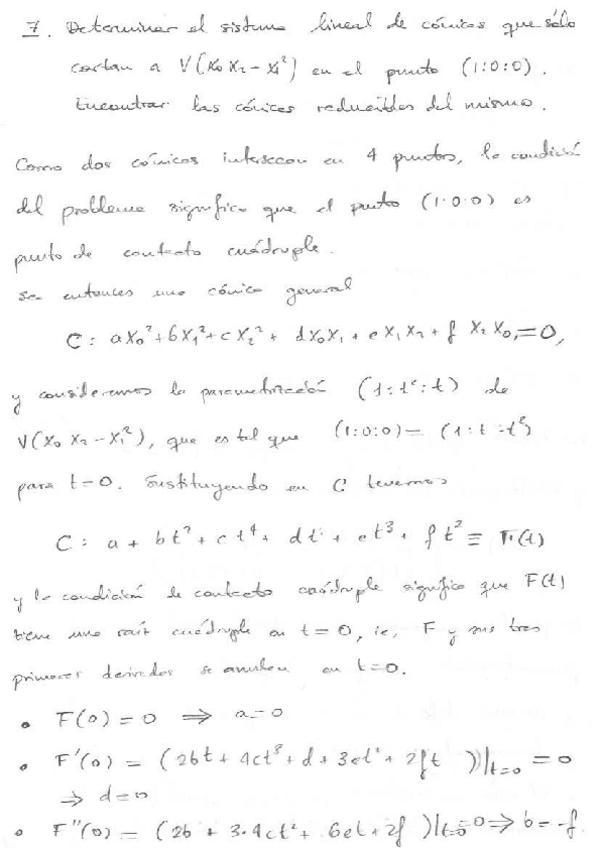 7. Determinar el sistema lineal de cónicas que sólo
cortan a V(x₀x₂-x₁²) en el punto (1:0:0).
Encontrar las cónicas reducibles del mismo.
Como dos cónicas intersecan en 4 puntos, la condición
del problema significa que el punto (1:0:0) es
punto de contacto cuádruple.
Sea entonces una cónica general
C: aX₀²+bX₁²+cX₂²+ dX₀X₁+eX₁X₂+f X₂X₀=0,
y consideramos la parametrización (1:t²:t) de
V(X₀X₂-X₁²), que es tal que (1:0:0)=(1:t:t²)
para t=0. Sustituyendo en C tenemos
C: a + bt²+ct⁴+ dt+ et³+ ft² ≡ F(t)
y la condición de contacto cuádruple significa que F(t)
tiene una raíz cuádruple en t=0, ie, F y sus tres
primeras derivadas se anulan en t=0.
• F(0)=0 ⇒ a=0
• F'(0) = (2bt+4ct³+d+3et²+2ft)|t=0 = 0
⇒ d=0
• F''(0) = (2b+3·4ct²+6et+2f)|t=0=0⇒b=-f